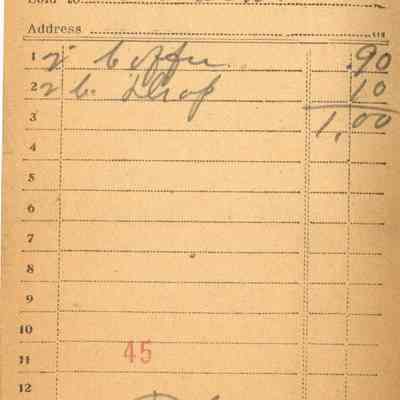 Sold to
Address
1 2 Coffee .90
2 2 b. 10
3 1,00
4
5
6
7
8
9
10
11 45
12